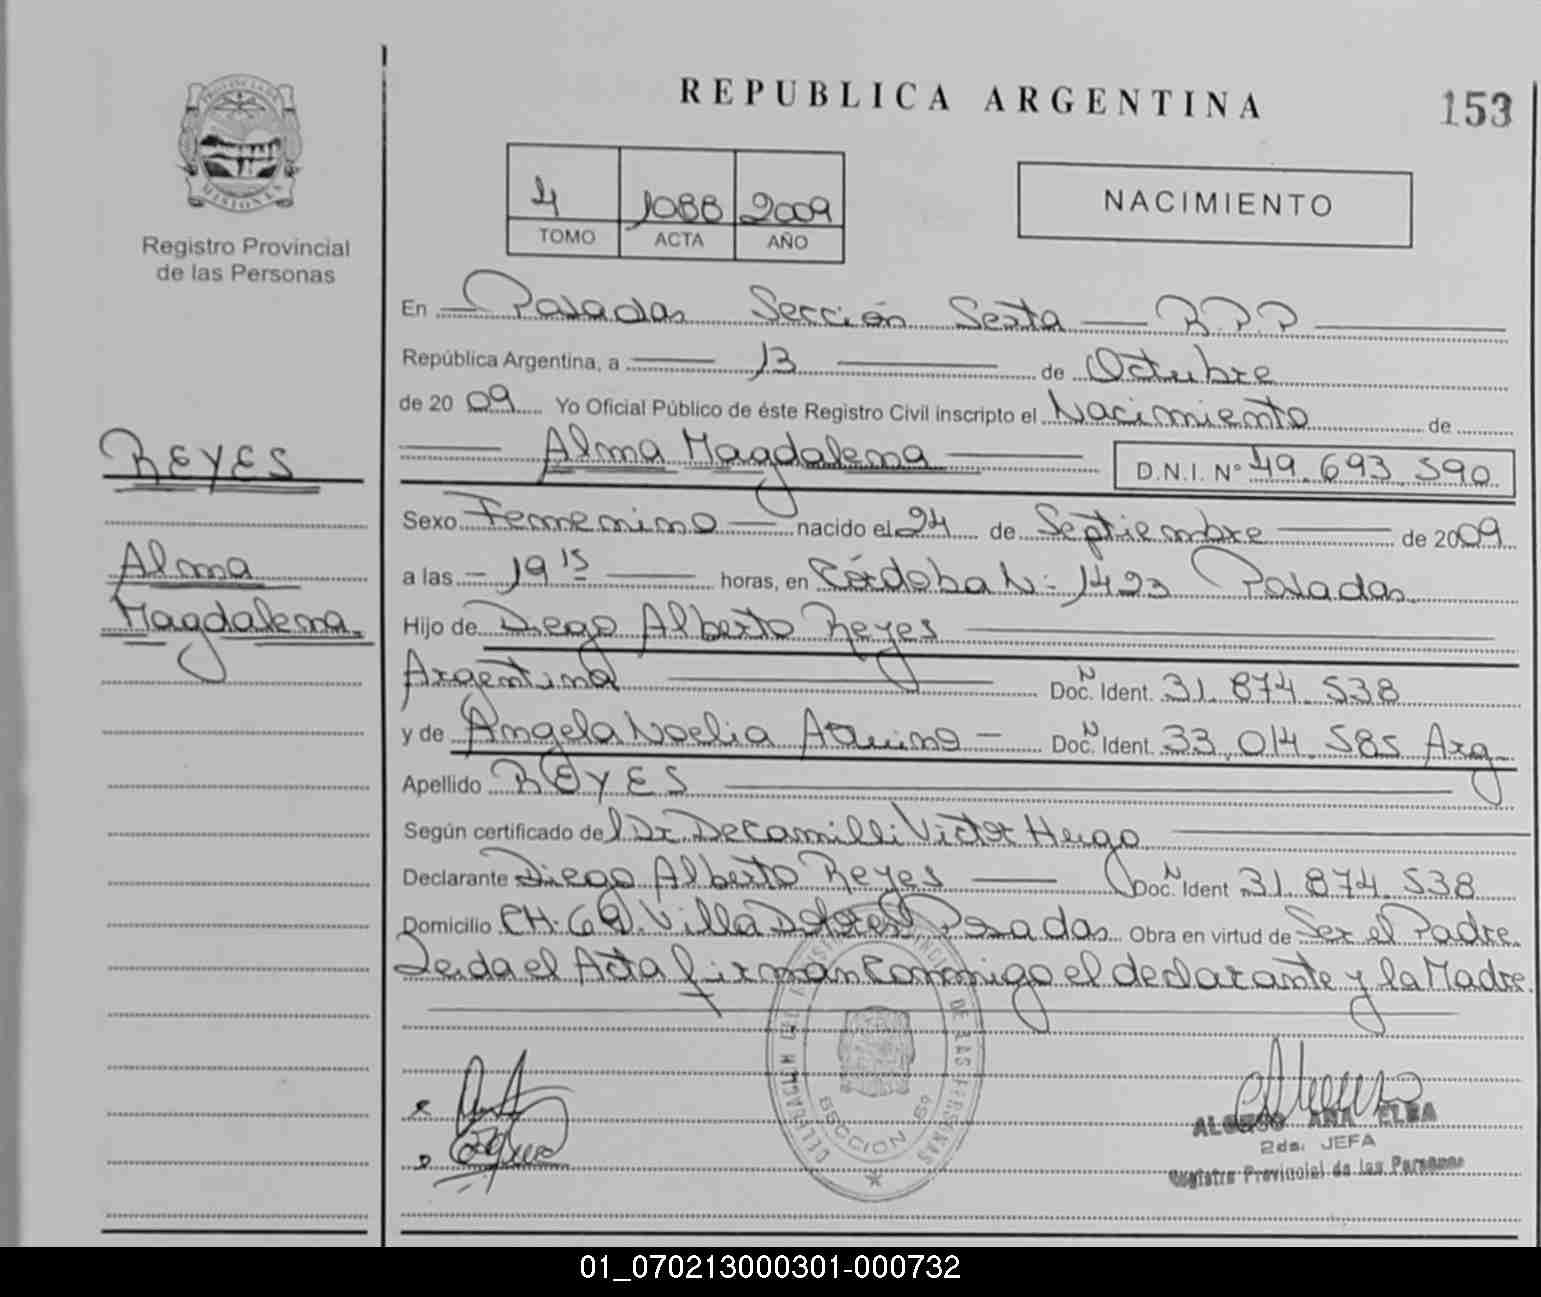 REPUBLICA ARGENTINA
153
PROVINCIA DE MISIONES
Registro Provincial
de las Personas
4 1088 2009
TOMO ACTA AÑO
NACIMIENTO
En Posadas Sección Sexta R.P.P
República Argentina, a 13 de Octubre
de 2009 Yo Oficial Público de éste Registro Civil inscripto el Nacimiento de
Alma Magdalena D.N.I. Nº 49.693.590
REYES
Alma
Magdalena.
Sexo Femenino nacido el 24 de Septiembre de 2009
a las 19 15 horas, en Córdoba N: 1423 Posadas.
Hijo de Diego Alberto Reyes
Argentina Doc. N Ident. 31.874.538
y de Angela Noelia Aquino Doc. N Ident. 33.014.585 Arg
Apellido REYES
Según certificado del Dr. Decamilli Victor Hugo
Declarante Diego Alberto Reyes Doc. N Ident 31.874.538
Domicilio CH. Villa Dolores Posadas Obra en virtud de Ser el Padre.
Leida el Acta firman conmigo el declarante y la Madre.
DELEGACION DEL REGISTRO PROVINCIAL DE LAS PERSONAS
SECCION 6º
ALONSO ANA ELBA
2da. JEFA
Registro Provincial de las Personas
01_070213000301-000732